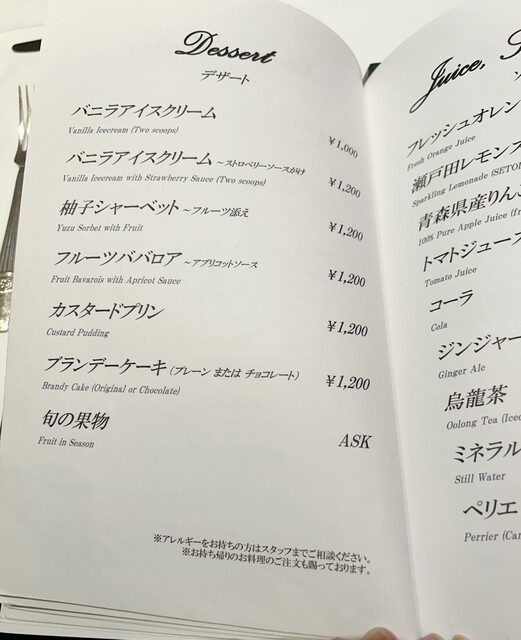 Dessert
デザート
バニラアイスクリーム
Vanilla Icecream (Two scoops)
¥1,000
バニラアイスクリーム ～ストロベリーソースがけ
Vanilla Icecream with Strawberry Sauce (Two scoops)
¥1,200
柚子シャーベット ～フルーツ添え
Yuzu Sorbet with Fruit
¥1,200
フルーツババロア ～アプリコットソース
Fruit Bavarois with Apricot Sauce
¥1,200
カスタードプリン
Custard Pudding
¥1,200
ブランデーケーキ (プレーン または チョコレート)
Brandy Cake (Original or Chocolate)
¥1,200
旬の果物
Fruit in Season
ASK
※アレルギーをお持ちの方はスタッフまでご相談ください。
※お持ち帰りのお料理のご注文も賜っております。
Juice,
フレッシュオレン
Fresh Orange Juice
瀬戸田レモンス
Sparkling Lemonade (SETO
青森県産りん
100% Pure Apple Juice (fr
トマトジュース
Tomato Juice
コーラ
Cola
ジンジャー
Ginger Ale
烏龍茶
Oolong Tea (Iced
ミネラル
Still Water
ペリエ
Perrier (Car